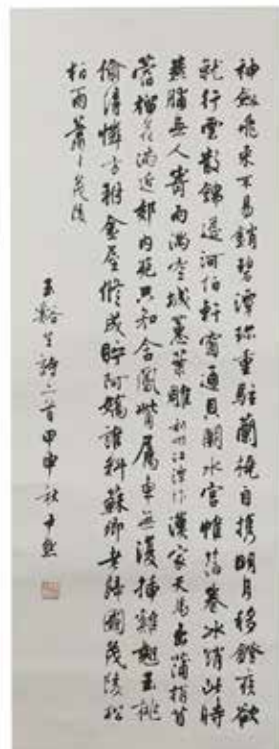 神劍飛來不易銷碧潭珍重駐蘭橈自攜明月移鐙疾欲
就行雲散錦遙河伯軒窗通貝闕水宮帷箔卷冰綃此時
燕脯無人寄雨滿空城蕙葉雕利州江潭作漢家天馬出蒲梢苜
蓿榴花滿近郊內苑只知含鳳觜屬車無復插雞翹玉桃
偷得憐方朔金屋修成貯阿嬌誰料蘇卿老歸國茂陵松
柏雨蕭〻茂陵
玉谿生詩二首甲申秋尹默